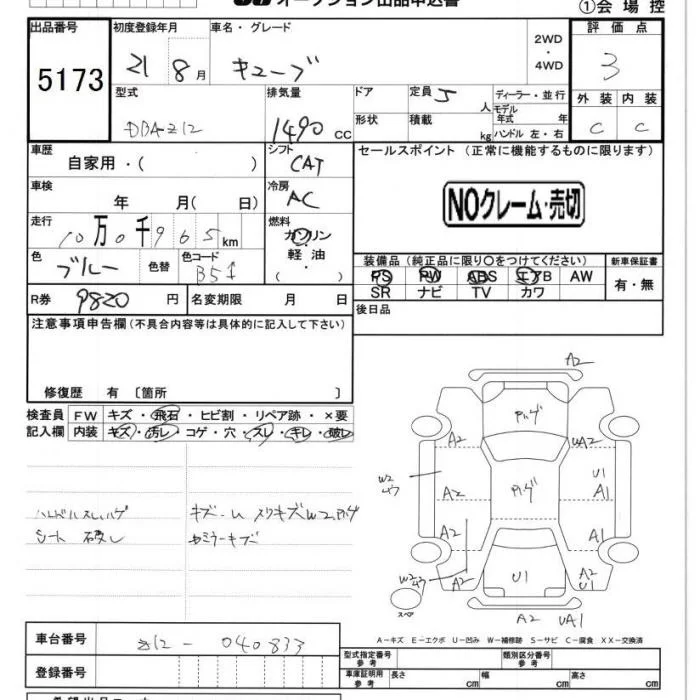 オークション出品申込書
①会場控
出品番号 初度登録年月 車名・グレード 評価点
5173 21 8月 キューブ 2WD・4WD 3
型式 排気量 ドア 定員 5人 ディーラー・並行 外装 内装
DBA-Z12 1490cc 形状 積載 kg モデル年式 年 ハンドル 左・右 C C
車歴 シフト セールスポイント (正常に機能するものに限ります)
自家用・( ) CAT
車検 冷房 NOクレーム・売切
年 月( 日) AC
走行 燃料
10万0千965km ガソリン
色 色替 色コード 軽油・
ブルー B51 ( )
装備品(純正品に限り○をつけてください) 新車保証書
PS PW ABS エアB AW 有・無
SR ナビ TV カワ
R券 9820円 名変期限 月 日 後日品
注意事項申告欄(不具合内容等は具体的に記入して下さい)
修復歴 有 〔箇所 〕
検査員 FW キズ・飛石・ヒビ割・リペア跡・×要
記入欄 内装 キズ・汚レ・コゲ・穴・スレ・キレ・破レ
ハンドルスレ、ハゲ
シート 破レ
カドミラーキズ
A2
A2 UA2
U1
W2 A2 A1
A2 A1
W2 A2 U1 A2
U1
スペア A2 UA1
A-キズ E-エクボ U-凹み W-補修跡 S-サビ C-腐食 XX-交換済
車台番号 Z12-040833
型式指定番号 参考 類別区分番号 参考
登録番号 車庫証明用 参考 長さ cm 幅 cm 高さ cm